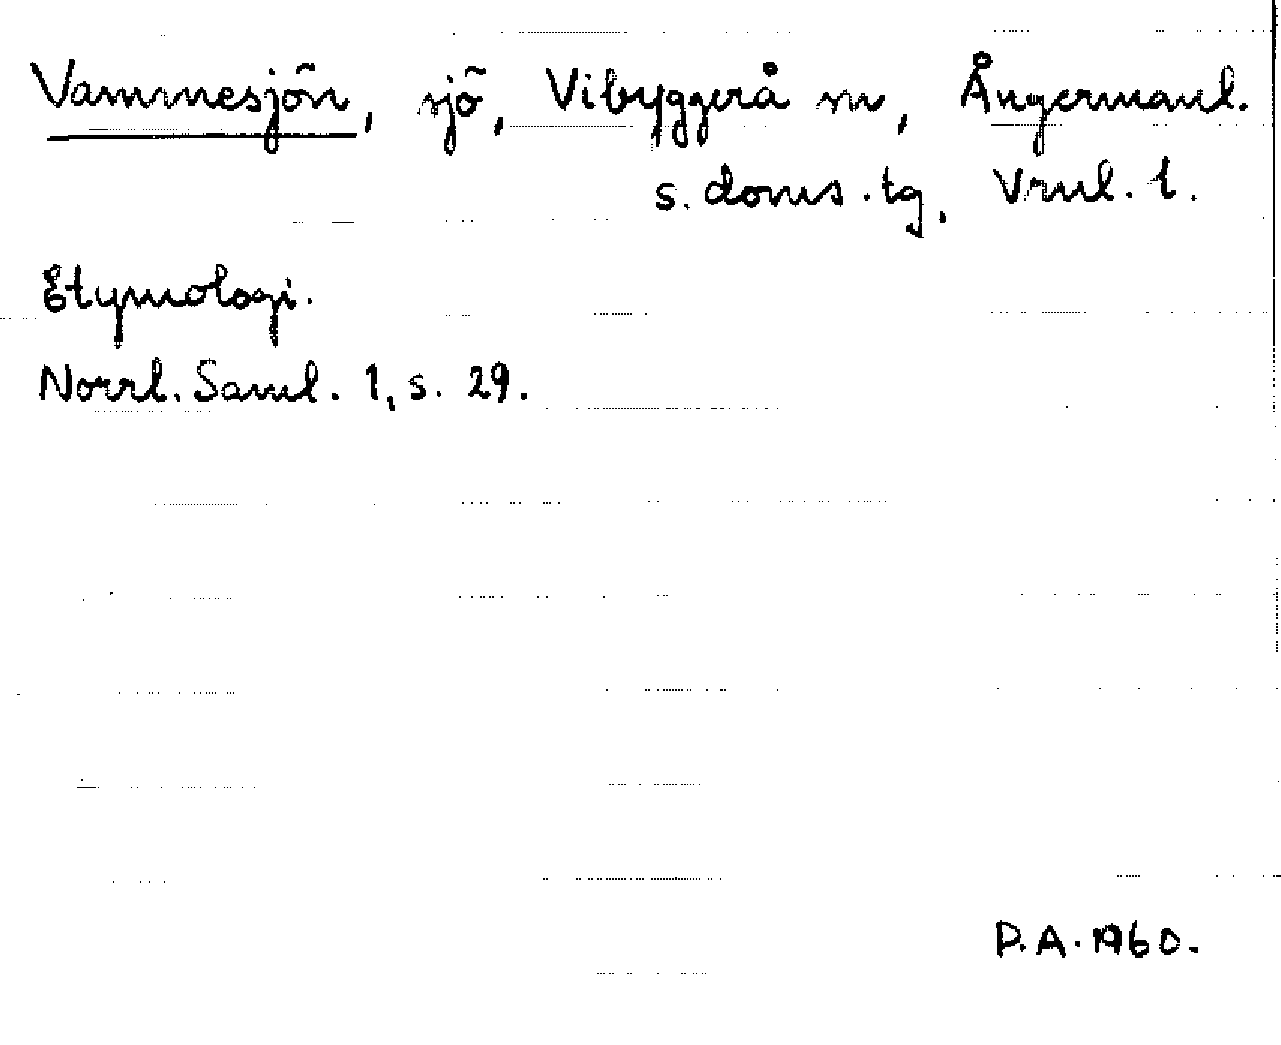 Vammesjön, sjö, Vibyggerå sn, Ångermanl.
s. doms. tg, Vrnl. l.
Etymologi.
Norrl. Saml. 1, s. 29.
P.A. 1960.